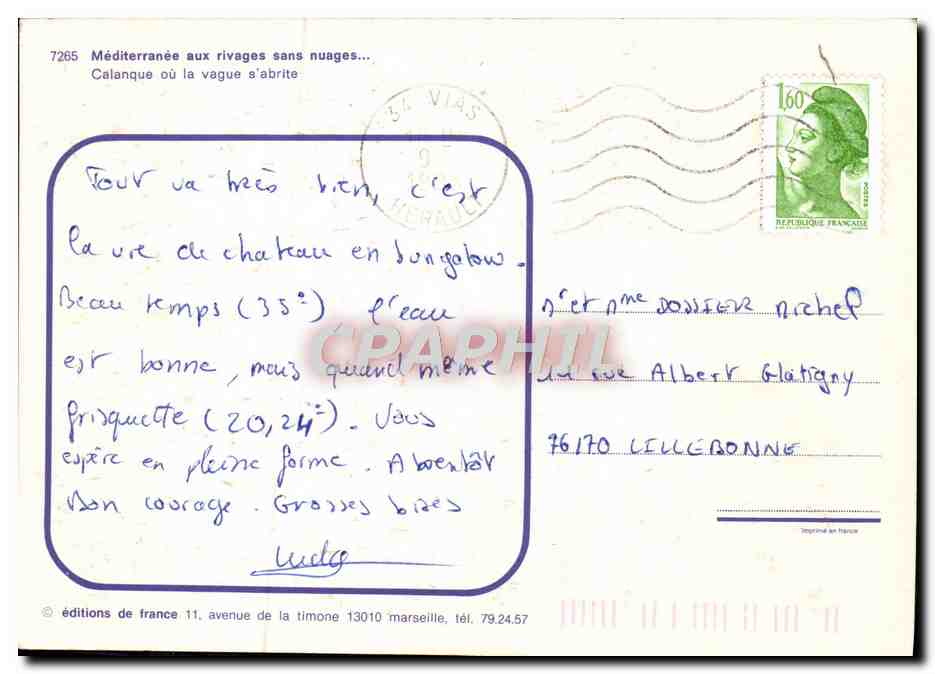 7265 Méditerranée aux rivages sans nuages...
Calanque où la vague s'abrite
34 VIAS
HERAULT
1,60
POSTES
REPUBLIQUE FRANÇAISE
Tout va très bien, c'est
la vie de chateau en bungalow.
Beau temps (35°) l'eau
est bonne, mais quand même
frisquette (20,24°). Vous
espère en pleine forme. A bientôt
Bon courage. Grosses bises
Ludo
Mr et Mme DOSSIER Michel
11 rue Albert Glatigny
76170 LILLEBONNE
Imprimé en france
CPAPHIL
© éditions de france 11, avenue de la timone 13010 marseille, tél. 79.24.57